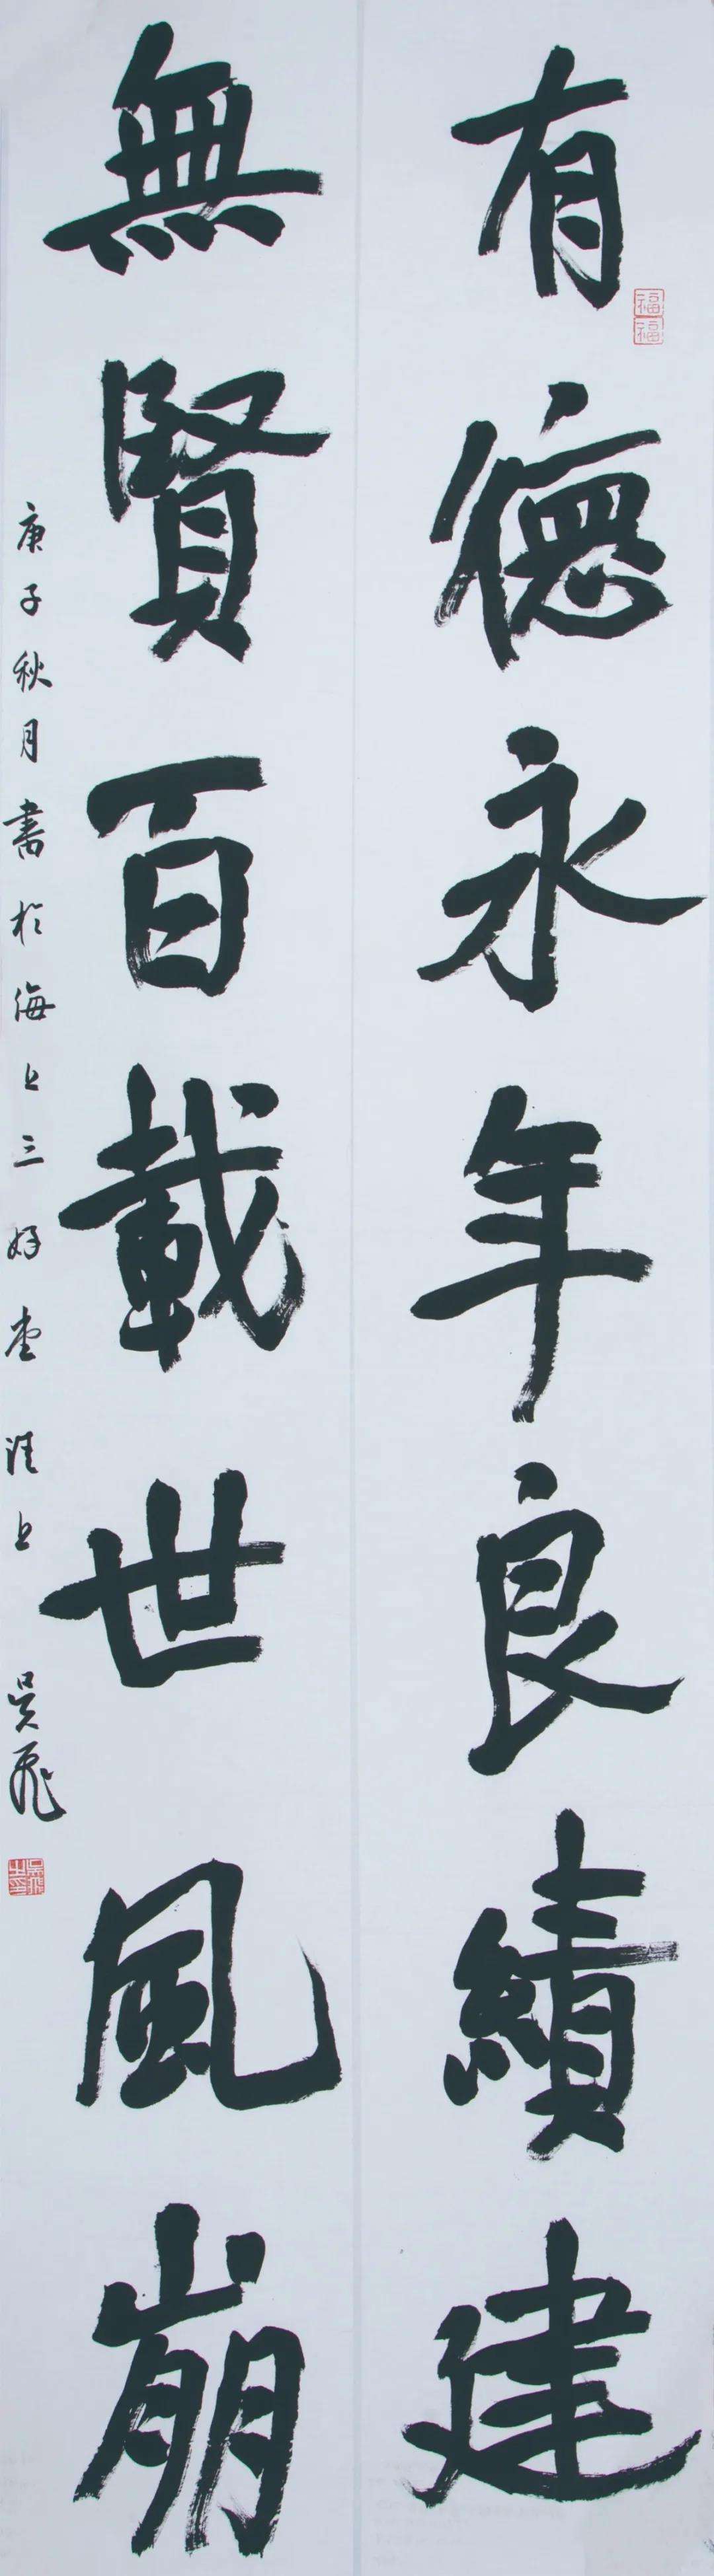 有德永年良績建
福
福
無賢百載世風崩
庚子秋月書於海上三好堂 淮上 吳飛